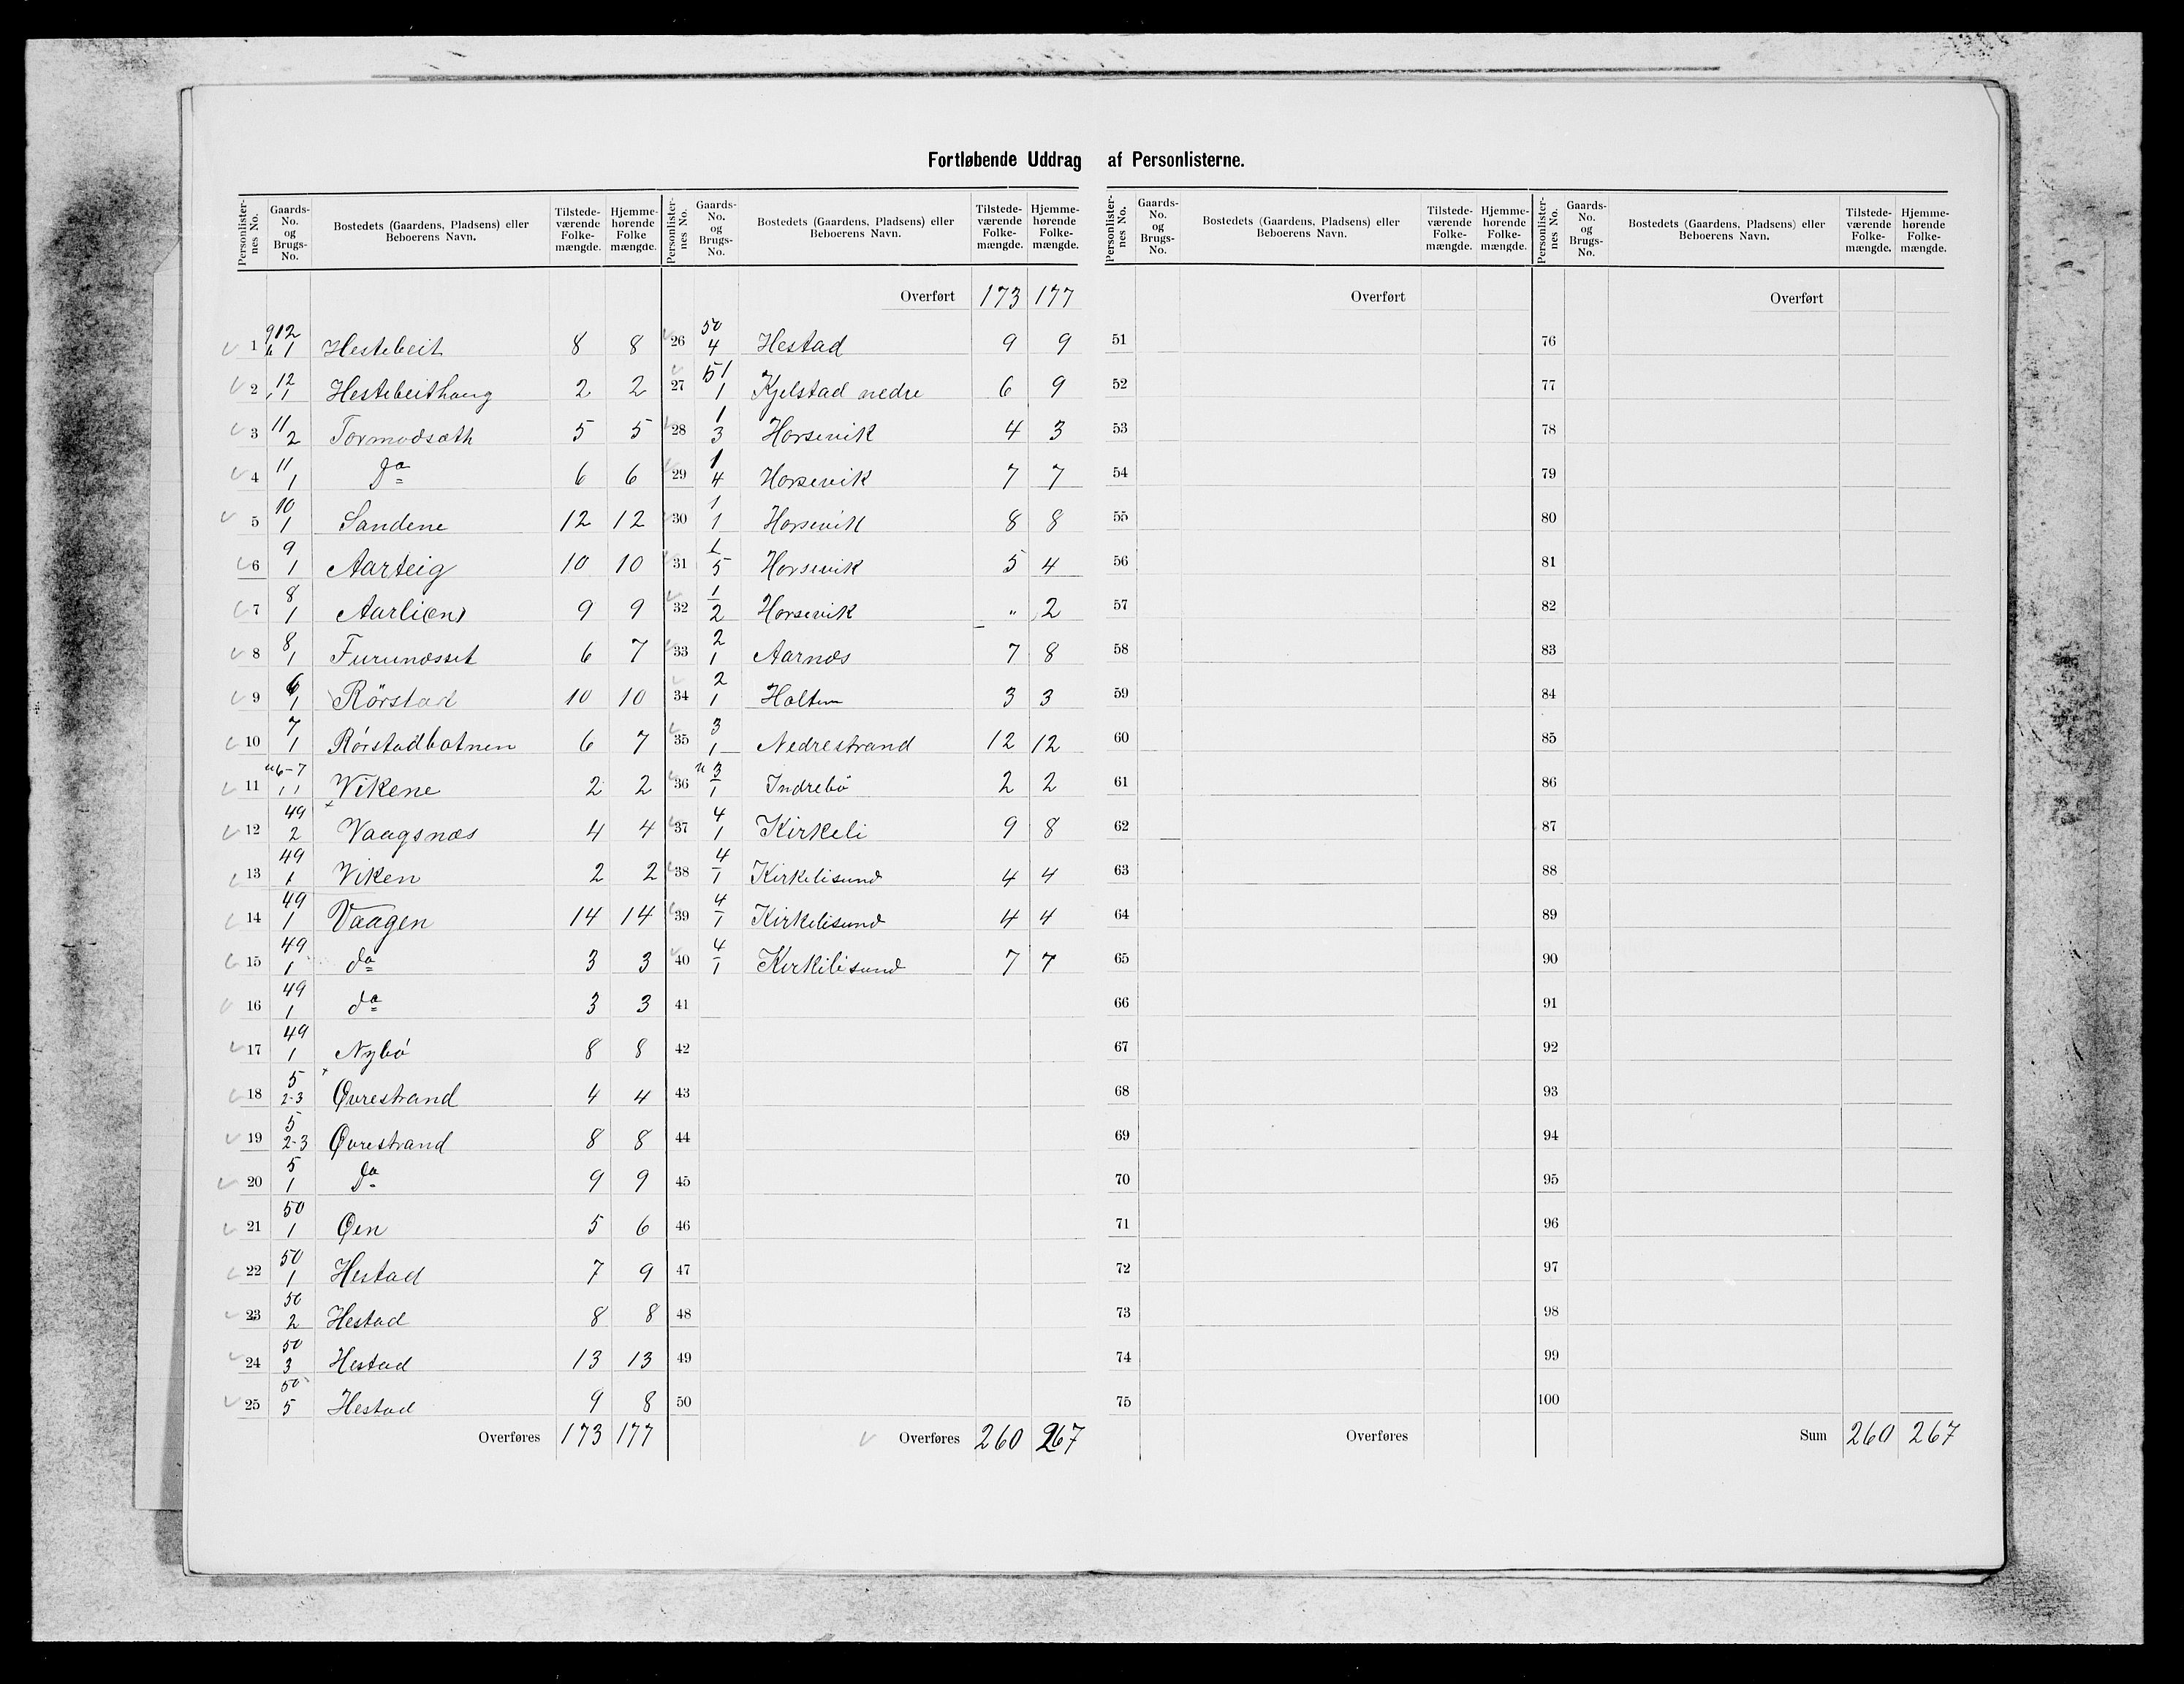 Fortløbende Uddrag af Personlisterne.
Personlisternes No. Gaards-No. og Brugs-No. Bostedets (Gaardens, Pladsens) eller Beboerens Navn. Tilstedeværende Folkemængde. Hjemmehørende Folkemængde.
Personlisternes No. Gaards-No. og Brugs-No. Bostedets (Gaardens, Pladsens) eller Beboerens Navn. Tilstedeværende Folkemængde. Hjemmehørende Folkemængde.
Personlisternes No. Gaards-No. og Brugs-No. Bostedets (Gaardens, Pladsens) eller Beboerens Navn. Tilstedeværende Folkemængde. Hjemmehørende Folkemængde.
Personlisternes No. Gaards-No. og Brugs-No. Bostedets (Gaardens, Pladsens) eller Beboerens Navn. Tilstedeværende Folkemængde. Hjemmehørende Folkemængde.
1 12/1 Hestebeit 8 8
2 12/1 Hestebeithaug 2 2
3 11/2 Tormodsæth 5 5
4 11/1 do 6 6
5 10/1 Sandene 12 12
6 9/1 Aarteig 10 10
7 8/1 Aarlien 9 9
8 8/1 Furunæsset 6 7
9 6/1 Rörstad 10 10
10 7/1 Rörstadbotnen 6 7
11 6-7/1 1 Vikene 2 2
12 49/2 Vaagsnæs 4 4
13 49/1 Viken 2 2
14 49/1 Vaagen 14 14
15 49/1 do 3 3
16 49/1 do 3 3
17 49/1 Nybö 8 8
18 5/2-3 Øvrestrand 4 4
19 5/2-3 Øvrestrand 8 8
20 5/1 do 9 9
21 50/1 Øen 5 6
22 50/1 Hestad 7 9
23 50/2 Hestad 8 8
24 50/3 Hestad 13 13
25 50/5 Hestad 9 8
Overføres 173 177
Overført 173 177
26 50/4 Hestad 9 9
27 51/1 Kjelstad nedre 6 9
28 1/3 Horsevik 4 3
29 1/4 Horsevik 7 7
30 1/1 Horsevik 8 8
31 1/5 Horsevik 5 4
32 1/2 Horsevik " 2
33 2/1 Aarnæs 7 8
34 2/1 Holten 3 3
35 3/1 Nedrestrand 12 12
36 3/1 Indrebö 2 2
37 4/1 Kirkeli 9 8
38 4/1 Kirkelisund 4 4
39 4/1 Kirkelisund 4 4
40 4/1 Kirkelisund 7 7
41
42
43
44
45
46
47
48
49
50
Overføres 260 267
Overført
51
52
53
54
55
56
57
58
59
60
61
62
63
64
65
66
67
68
69
70
71
72
73
74
75
Overføres
Overført
76
77
78
79
80
81
82
83
84
85
86
87
88
89
90
91
92
93
94
95
96
97
98
99
100
Sum 260 267